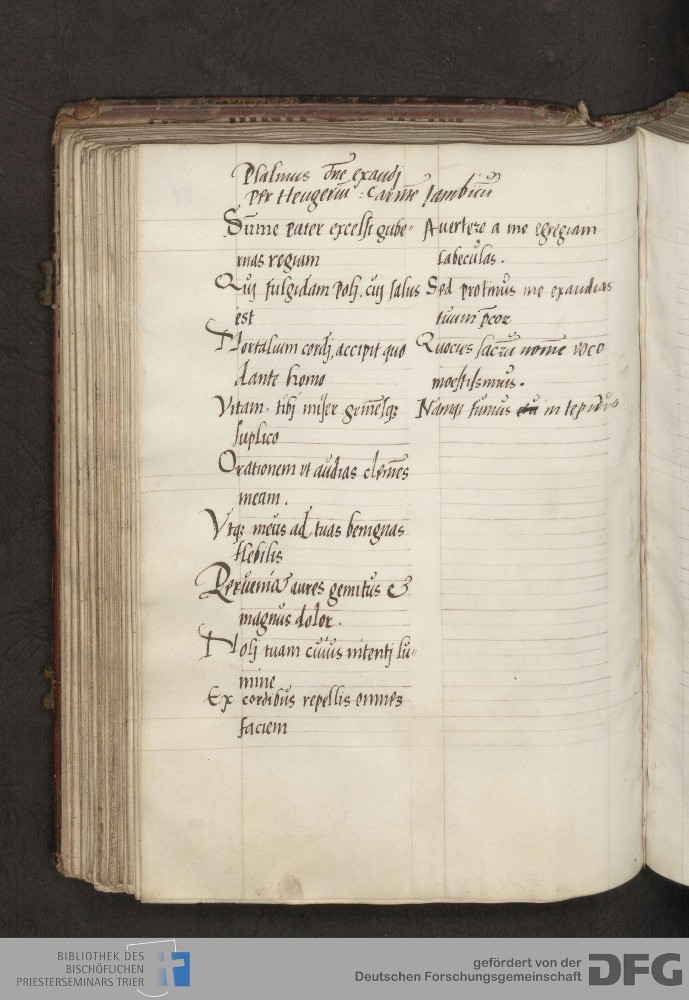 Psalmus dñe exaudj
Per Heugerũ : Carmẽ Iambicũ
Sũme pater excelsi gube-
rnas regiam
Quj fulgidam polj, cuj salus
est
Mortalium cordj, accipit quo
dante homo
Vitam. tibj miser gemẽsq;
suplico
Orationem ut audias clemẽs
meam.
Vtq; meus ad tuas benignas
flebilis
Perueniat aures gemitus &
magnus dolor.
Nolj tuam cuius nitentj lu-
mine
Ex cordibus repellis omnes
faciem
Auertere a me egregiam
labeculas.
Sed protinus me exaudias
tuum p̃cor
Quocies sacrũ nomẽ voco
mœstissimus.
Namq; fumus in tepidus
BIBLIOTHEK DES
BISCHÖFLICHEN
PRIESTERSEMINARS TRIER
gefördert von der
Deutschen Forschungsgemeinschaft
DFG